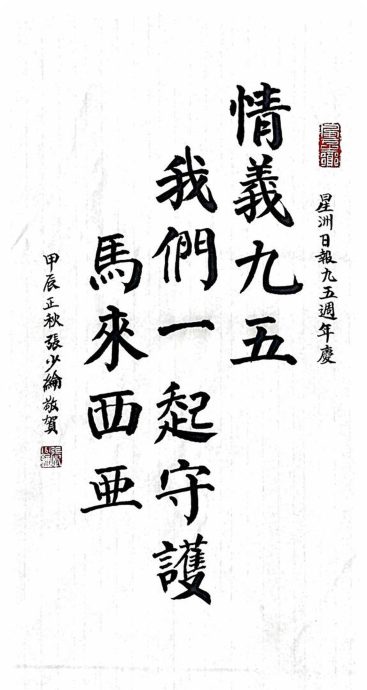 星洲日報九五週年慶
情義九五
我們一起守護
馬來西亞
甲辰正秋張少綸敬賀